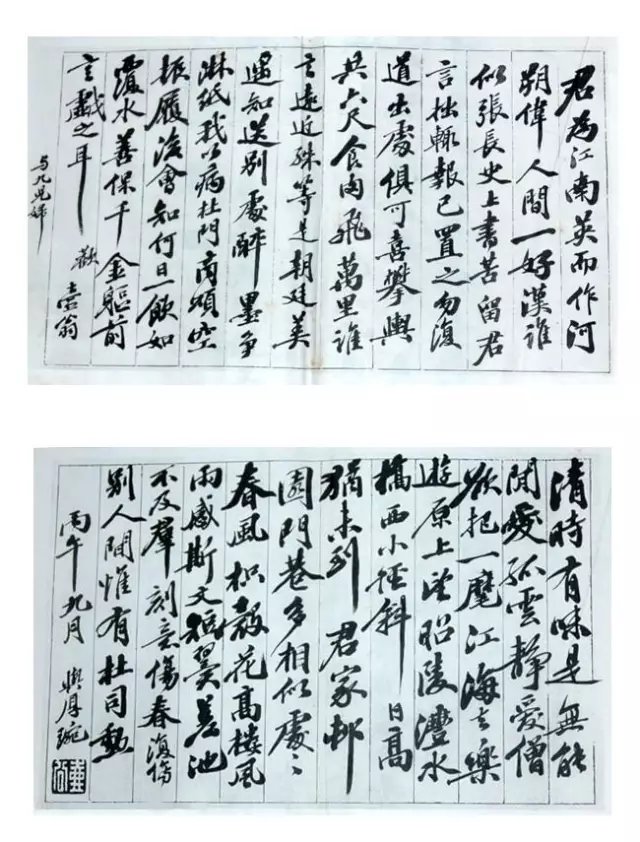 君為江南英而作河
朔偉人間一好漢誰
似張長史上書苦留君
言拙輒報已置之勿復
道出處俱可喜攀輿
共六尺食肉飛萬里誰
言遠近殊等是朝廷美
遙知送別處醉墨爭
淋紙我以病杜門商頌空
振履後會知何日一飲如
覆水善保千金軀前
言戲之耳 翁
清時有味是無能
閒愛孤雲靜愛僧
欲把一麾江海去樂
遊原上望昭陵灃水
橋西小徑斜日高
猶未到君家邨
園門巷多相似處々
春風枳殼花高樓風
雨感斯文短翼差池
不及羣刻意傷春復傷
別人間惟有杜司勳
丙午九月 與厚琬